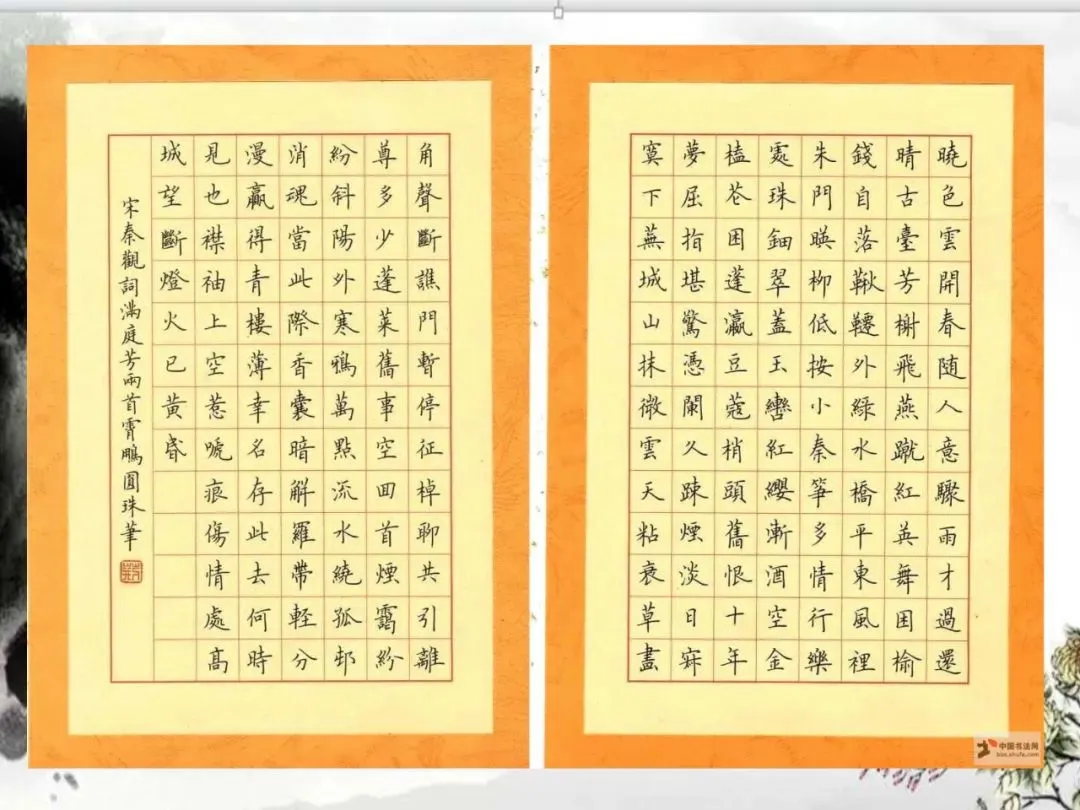 曉色雲開春随人意驟雨才過還
晴古臺芳榭飛燕蹴紅英舞困榆
錢自落鞦韆外綠水橋平東風裡
朱門暎柳低按小秦箏多情行樂
處珠鈿翠蓋玉轡紅纓漸酒空金
榼花困蓬瀛豆蔻梢頭舊恨十年
夢屈指堪驚憑闌久踈煙淡日寂
寞下蕪城山抹微雲天粘衰草畫
角聲斷譙門暫停征棹聊共引離
尊多少蓬萊舊事空囬首煙靄紛
紛斜陽外寒鴉萬點流水繞孤邨
消魂當此際香囊暗解羅帶軽分
漫贏得青樓薄幸名存此去何時
見也襟袖上空惹嗁痕傷情處高
城望斷燈火已黃昏
宋秦觀詞滿庭芳兩首霄鵬圓珠筆
中国书法网